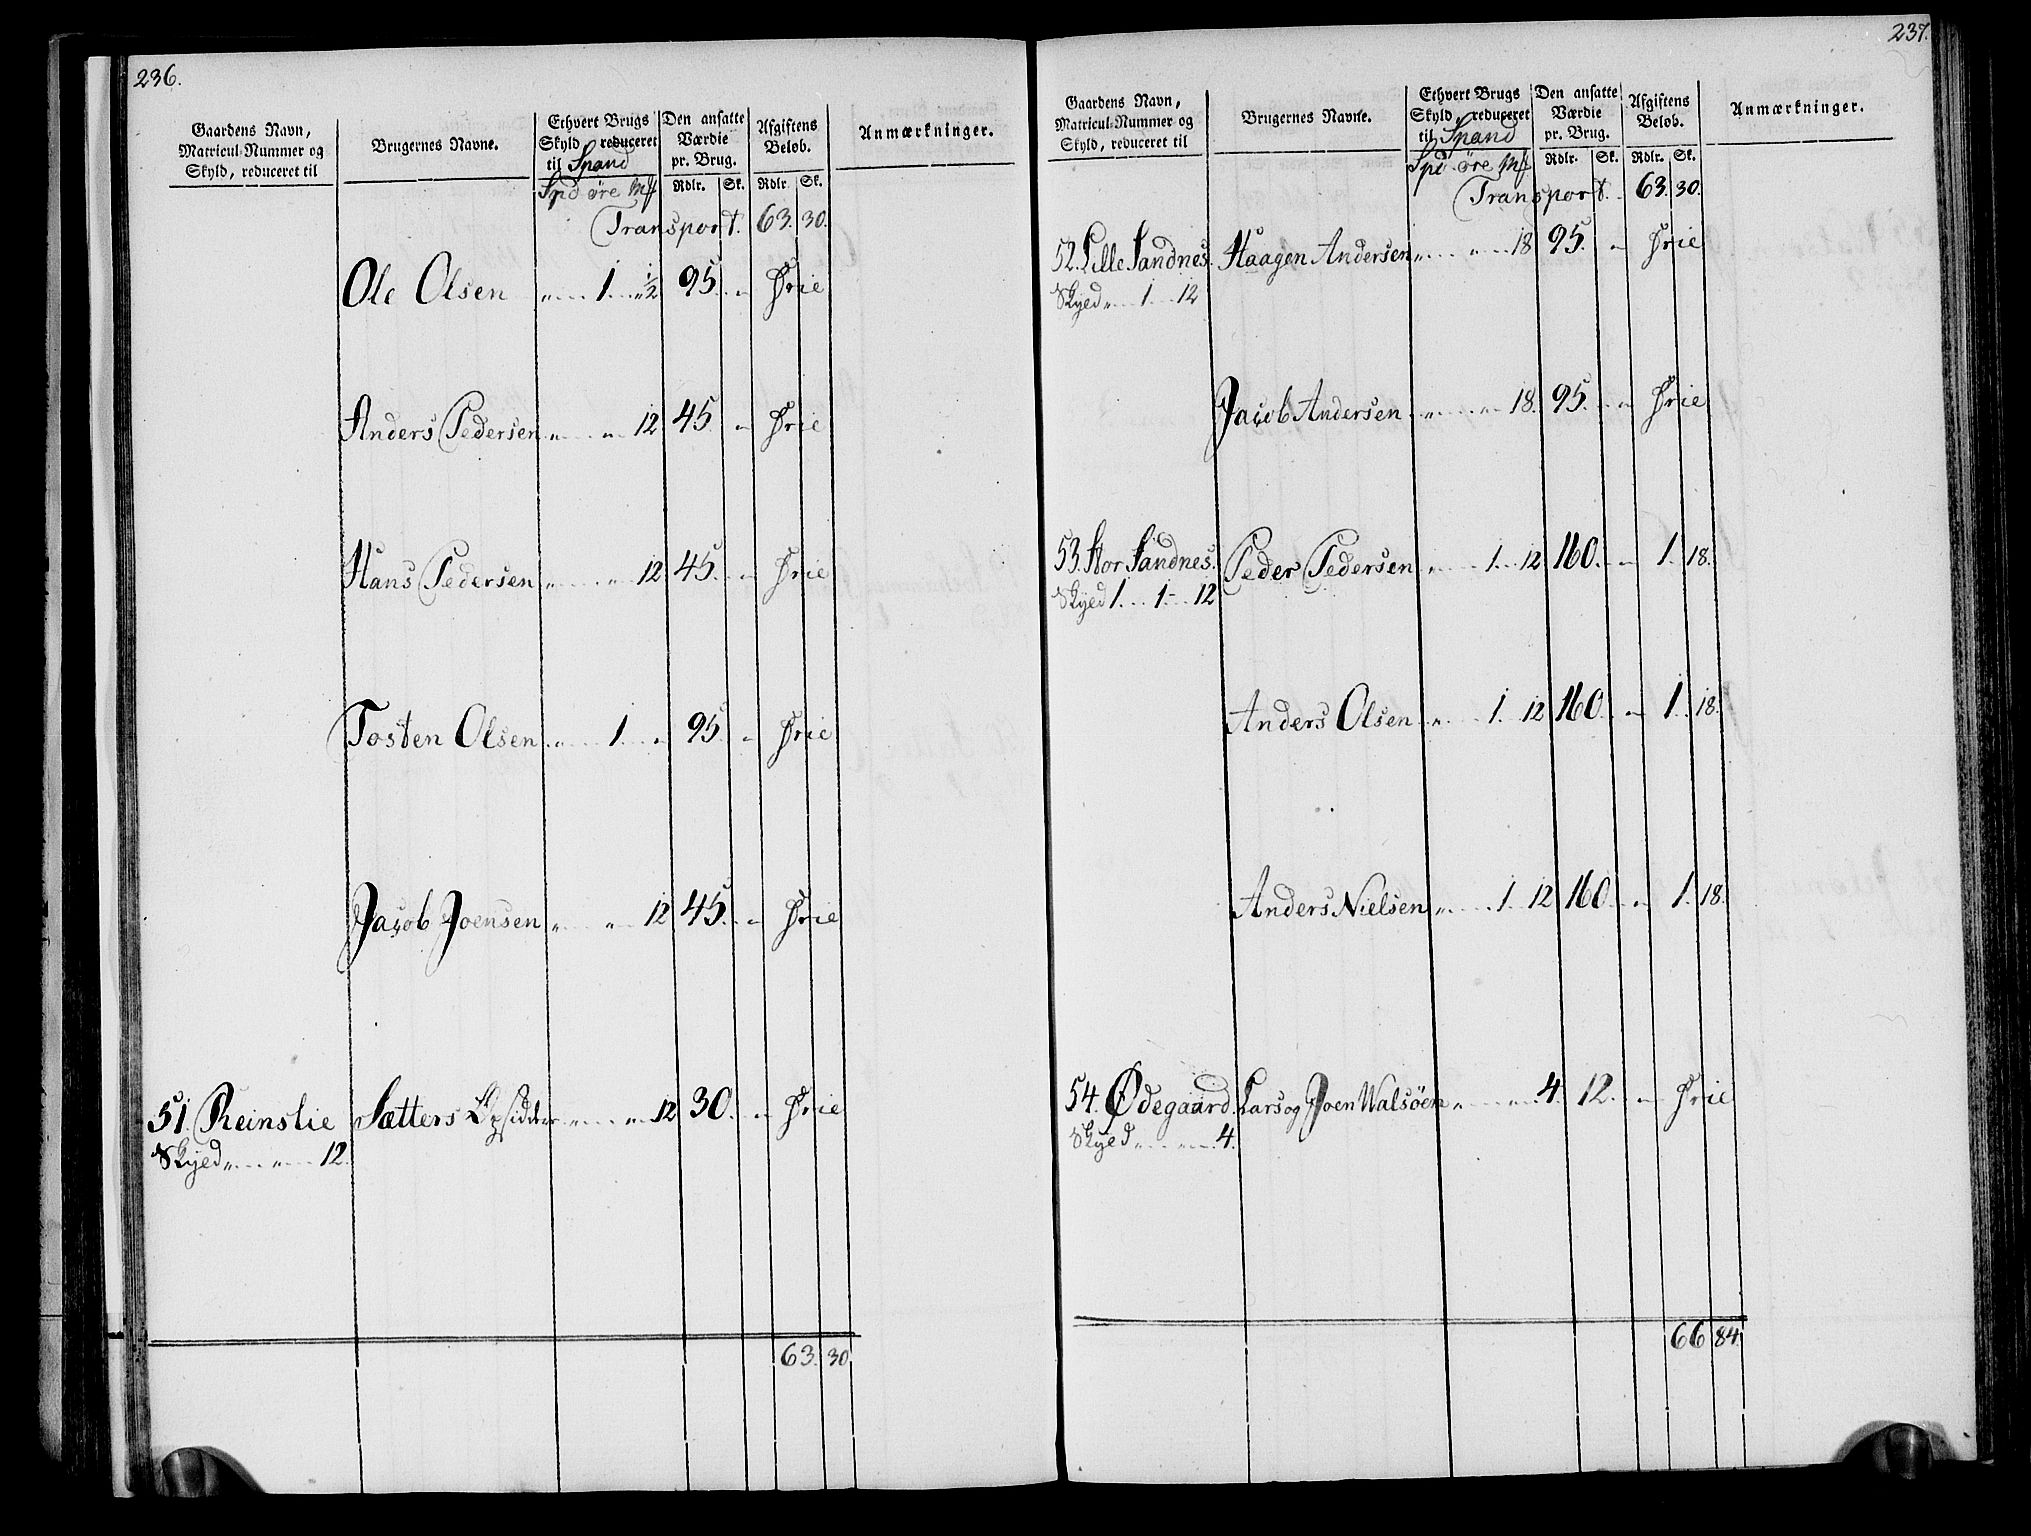 236.
Gaardens Navn,
Matricul-Nummer og
Skyld, reduceret til
Brugernes Navne.
Ethvert Brugs
Skyld, reduceret
til Spand
Spd øre Mf
Den ansatte
Værdie
pr. Brug.
Rdlr. Sk.
Afgiftens
Beløb.
Rdlr. Sk.
Anmærkninger.
Transport. 63. 30.
Ole Olsen " 1. " ½ 95. " Frie
Anders Pedersen " " 12 45 " Frie
Hans Pedersen " " 12 45. " Frie
Tosten Olsen " 1. " 95. " Frie
Jacob Joensen " " 12 45. " Frie
51. Reinslie Sætters Opsidder " " 12 30. " Frie
Skyed " " 12.
63. 30
237.
Gaardens Navn,
Matricul-Nummer og
Skyld, reduceret til
Brugernes Navne.
Ethvert Brugs
Skyld, reduceret
til Spand
Spd øre Mf
Den ansatte
Værdie
pr. Brug.
Rdlr. Sk.
Afgiftens
Beløb.
Rdlr. Sk.
Anmærkninger.
Transport. 63. 30.
52. Lille Sandnes. Haagen Andersen " " 18 95. " Frie
Skyed " 1. 12
Jacob Andersen " " 18. 95. " Frie
53. Stor Sandnes. Peder Pedersen " 1. 12 160. " 1. 18.
Skyed 1. 1. 12
Anders Olsen " 1. 12 160. " 1. 18.
Anders Nielsen " 1. 12 160. " 1. 18.
54. Ødegaard. Lars og Joen Walsöen " " 4. 12. " Frie
Skyed " " 4.
66 84